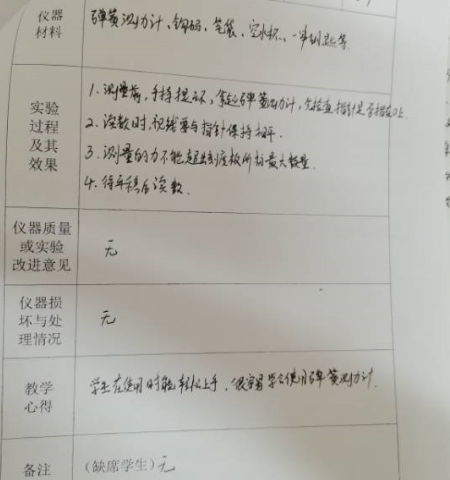 仪器
材料
弹簧测力计、钩码、笔袋、空水杯、一串钥匙等.
实验
过程
及其
效果
1.测量前,手持提环,拿起弹簧测力计,先检查指针是否指在0上
2.读数时,视线要与指针保持相平.
3.测量的力不能超出刻度板所标最大数量.
4.待平稳后读数.
仪器质量
或实验
改进意见
无
仪器损
坏与处
理情况
无
教学
心得
学生在使用时能轻松上手,很容易学会使用弹簧测力计.
备注
(缺席学生)无